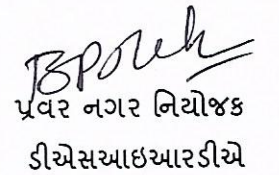 પ્રવર નગર નિયોજક
ડીએસઆઇઆરડીએ